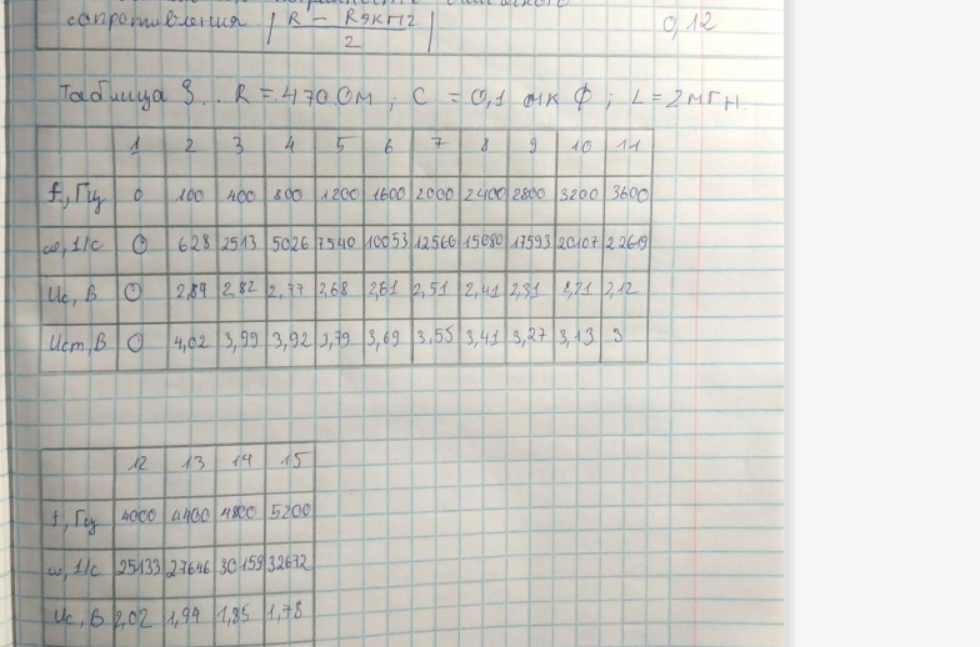 сопротивления | R - Rэкп2 / 2 | 0,12
Таблица 3. R = 470 Ом ; C = 0,1 мкФ ; L = 2 мГн.
1 2 3 4 5 6 7 8 9 10 11
f, Гц 0 100 400 800 1200 1600 2000 2400 2800 3200 3600
ω, 1/с 0 628 2513 5026 7540 10053 12566 15080 17593 20107 22619
Uc, В 0 2,84 2,82 2,77 2,68 2,61 2,51 2,41 2,31 2,21 2,12
Uст, В 0 4,02 3,99 3,92 3,79 3,69 3,55 3,41 3,27 3,13 3
12 13 14 15
f, Гц 4000 4400 4800 5200
ω, 1/с 25133 27646 30159 32672
Uc, В 2,02 1,94 1,85 1,78